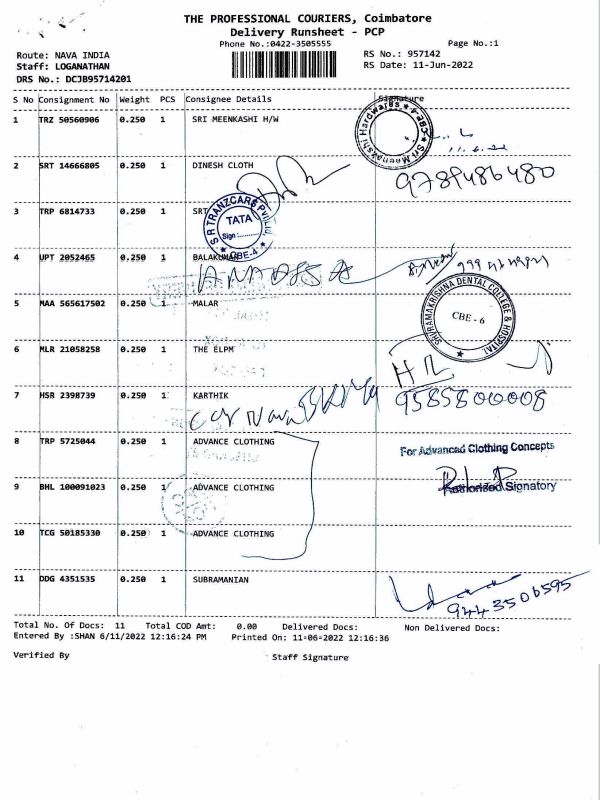 THE PROFESSIONAL COURIERS, Coimbatore
Delivery Runsheet - PCP
Phone No.:0422-3505555
Page No.:1
Route: NAVA INDIA
RS No.: 957142
Staff: LOGANATHAN
RS Date: 11-Jun-2022
DRS No.: DCJB95714201
S No Consignment No Weight PCS Consignee Details Signature
1 TRZ 50560906 0.250 1 SRI MEENKASHI H/W
Sri Meenakshi Hardwares
2 SRT 14666805 0.250 1 DINESH CLOTH
3 TRP 6814733 0.250 1 SRT
S R TRANZCARS
TATA
Sign
CBE-4
4 UPT 2052465 0.250 1 BALAKUMAR
5 MAA 565617502 0.250 1 MALAR
SRI RAMAKRISHNA DENTAL COLLEGE & HOSPITAL
CBE - 6
6 MLR 21058258 0.250 1 THE ELPM
7 HSR 2398739 0.250 1 KARTHIK
9585800008
8 TRP 5725044 0.250 1 ADVANCE CLOTHING
For Advanced Clothing Concepts
9 BHL 100091023 0.250 1 ADVANCE CLOTHING
Authorized Signatory
10 TCG 50185330 0.250 1 ADVANCE CLOTHING
11 DDG 4351535 0.250 1 SUBRAMANIAN
9443506595
Total No. Of Docs: 11 Total COD Amt: 0.00 Delivered Docs: Non Delivered Docs:
Entered By :SHAN 6/11/2022 12:16:24 PM Printed On: 11-06-2022 12:16:36
Verified By Staff Signature